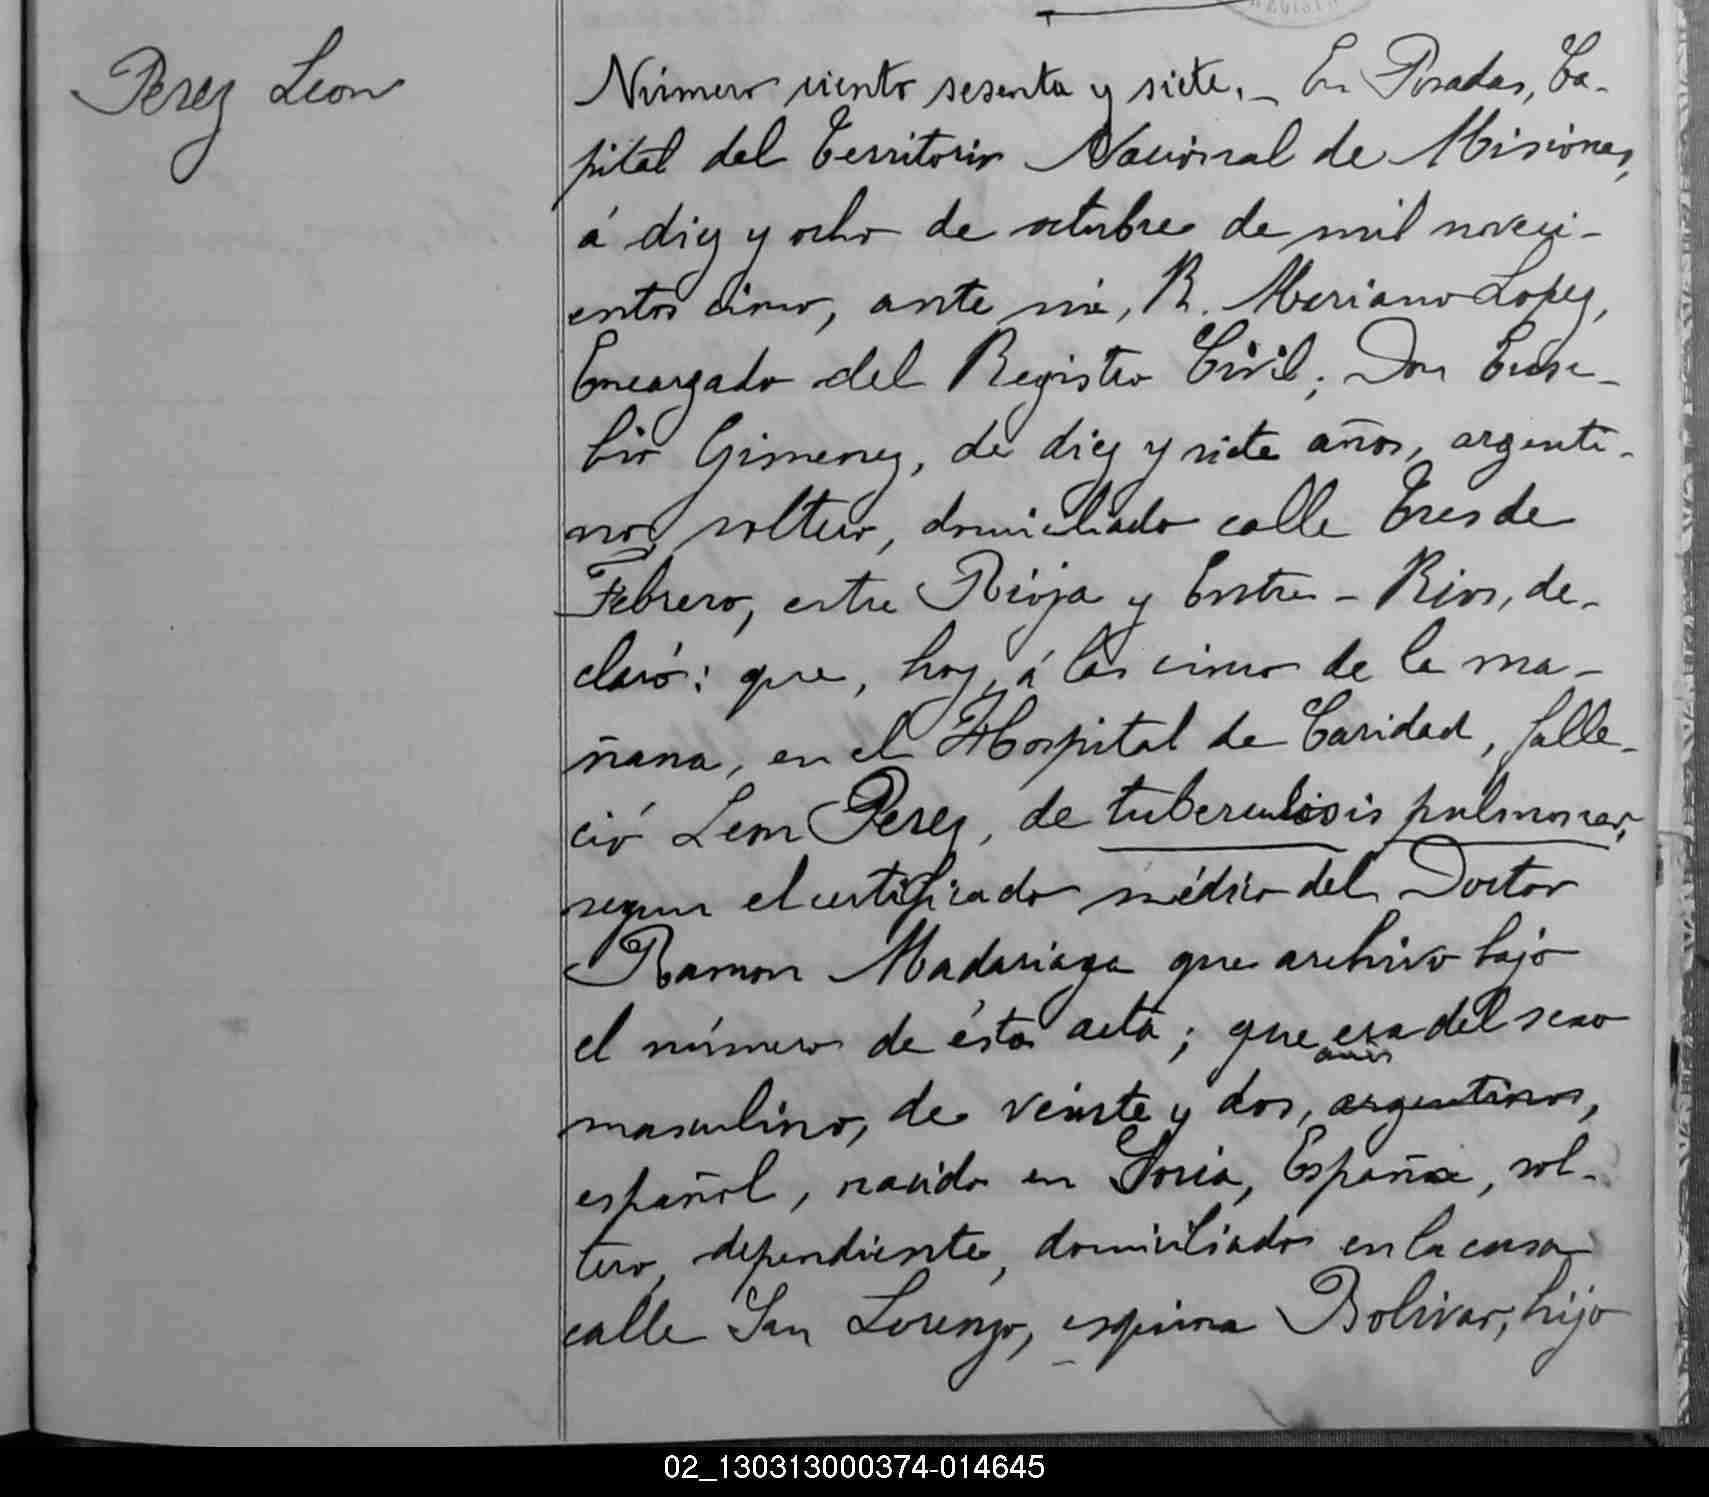 Perez Leon
Número ciento sesenta y siete._ En Posadas, Ca-
pital del Territorio Nacional de Misiones,
á diez y ocho de octubre de mil noveci-
entos cinco, ante mí, R. Mariano Lopez,
Encargado del Registro Civil; Don Euse-
bio Gimenez, de diez y siete años, argenti-
no, soltero, domiciliado calle Tres de
Febrero, entre Rioja y Entre-Rios, de-
claró: que, hoy, á las cinco de la ma-
ñana, en el Hospital de Caridad, falle-
ció Leon Perez, de tuberculosis pulmonar,
segun el certificado médico del Doctor
Ramon Madariaga que archivo bajo
el número de ésta acta; que era del sexo
masculino, de veinte y dos, años argentino,
español, nacido en Soria, España, sol-
tero, dependiente, domiciliado en la casa
calle San Lorenzo, esquina Bolivar, hijo
02_130313000374-014645